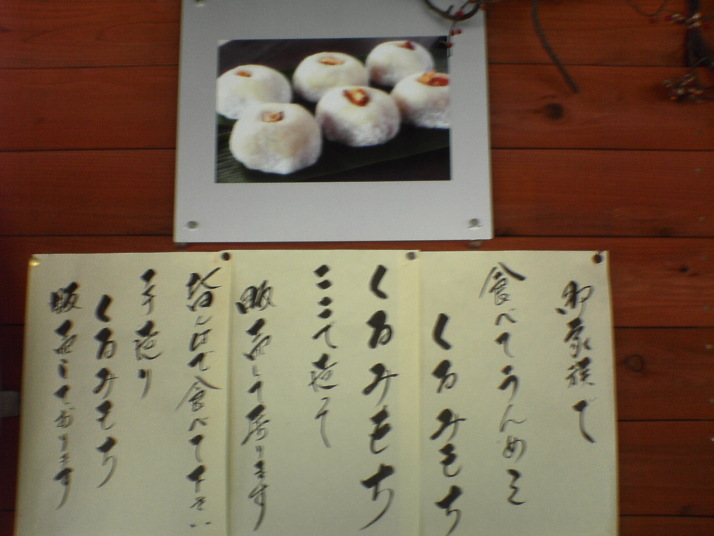 御家族で
食べてうんめェ
くるみもち
くるみもち
ここで造って
販売して居ります
はんけて食べて下さい
手造り
くるみもち
販売しております